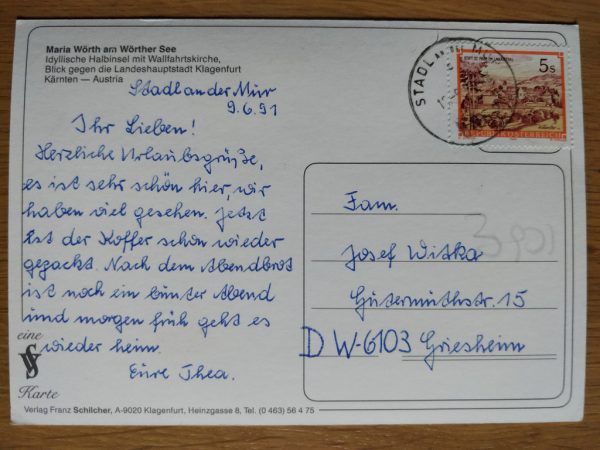 Maria Wörth am Wörther See
Idyllische Halbinsel mit Wallfahrtskirche,
Blick gegen die Landeshauptstadt Klagenfurt
Kärnten — Austria
Stadl an der Mur
9.6.91
Ihr Lieben!
Herzliche Urlaubsgrüße,
es ist sehr schön hier, wir
haben viel gesehen. Jetzt
ist der Koffer schon wieder
gepackt. Nach dem Abendbrot
ist noch ein bunter Abend
und morgen früh geht es
wieder heim.
Eure Thea.
eine
Karte
Verlag Franz Schilcher, A-9020 Klagenfurt, Heinzgasse 8, Tel. (0 463) 56 4 75
STADL AN DER MUR
5s
REPUBLIK ÖSTERREICH
Fam.
Josef Witka
Gütermuthstr. 15
D W-6103 Griesheim